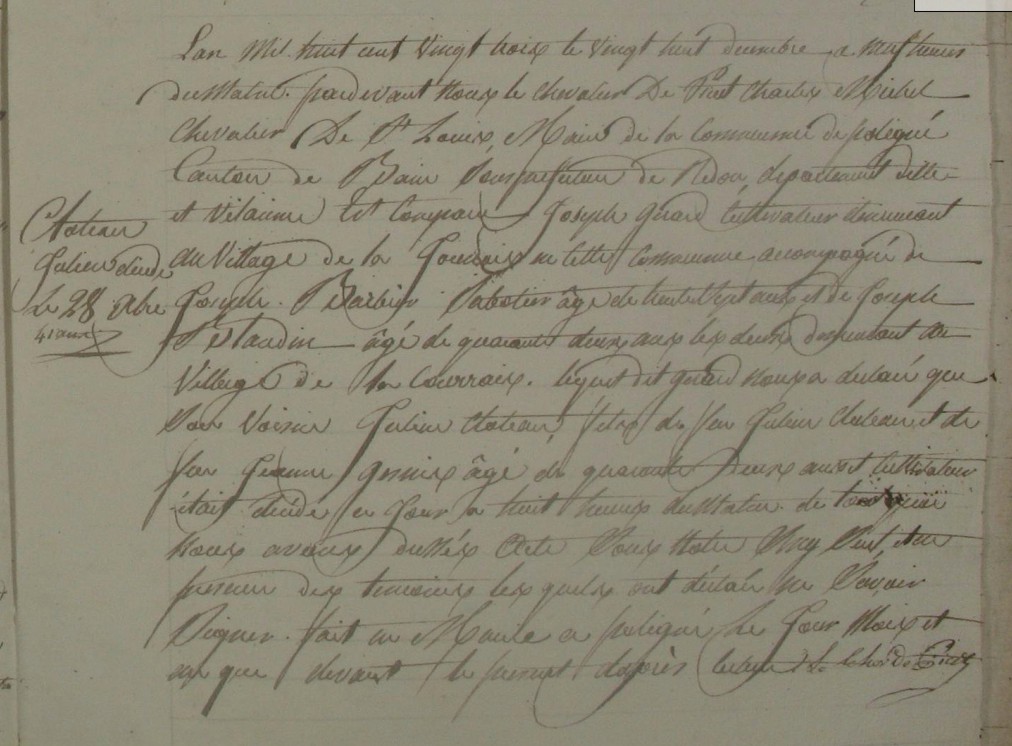 L'an mil huit cent vingt trois le vingt huit decembre a neuf heures
du matin par devant nous le chevalier De Charles Michel
Chevalier De St Louis, Maire de la Commune de poligné
Canton de Bain Sous prefecture de Redon, departement d'ille
et Vilaine Est Comparu Joseph Gérard cultivateur demeurant
Chateau
Julien décédé
Le 28 xbre
41 ans
du Village de la en cette Commune accompagné de
Joseph Barbier Sabotier âgé de trente Sept ans et de Joseph
âgé de quarante deux ans les deux demeurant au
Village de la Courrais. lequel dit gérard nous a déclaré que
Son Voisin Julien Chateau, fils de feu Julien Chateau et de
feu Jeanne âgé de quarante deux ans et cultivateur
était décédé ce Jour a huit heures du matin. de tout quoi
nous avons dressés acte Sous notre Sing Seul, etan
presence des temoins les quels ont déclaré ne Savoir
Signer. fait en Mairie a poligné Le Jour Mois et
an que devant le present d'après lecture